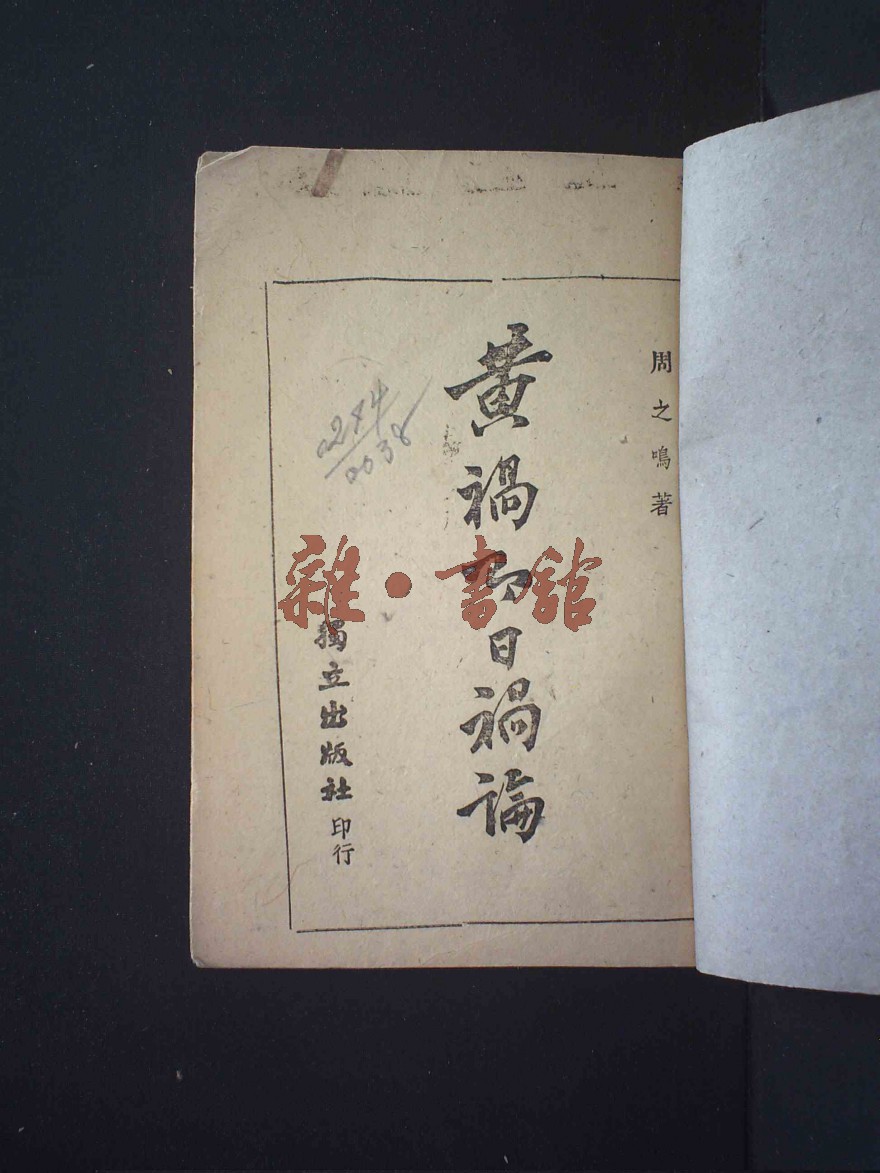 周之鳴著
黃禍即日禍論
獨立出版社印行
雜·書館